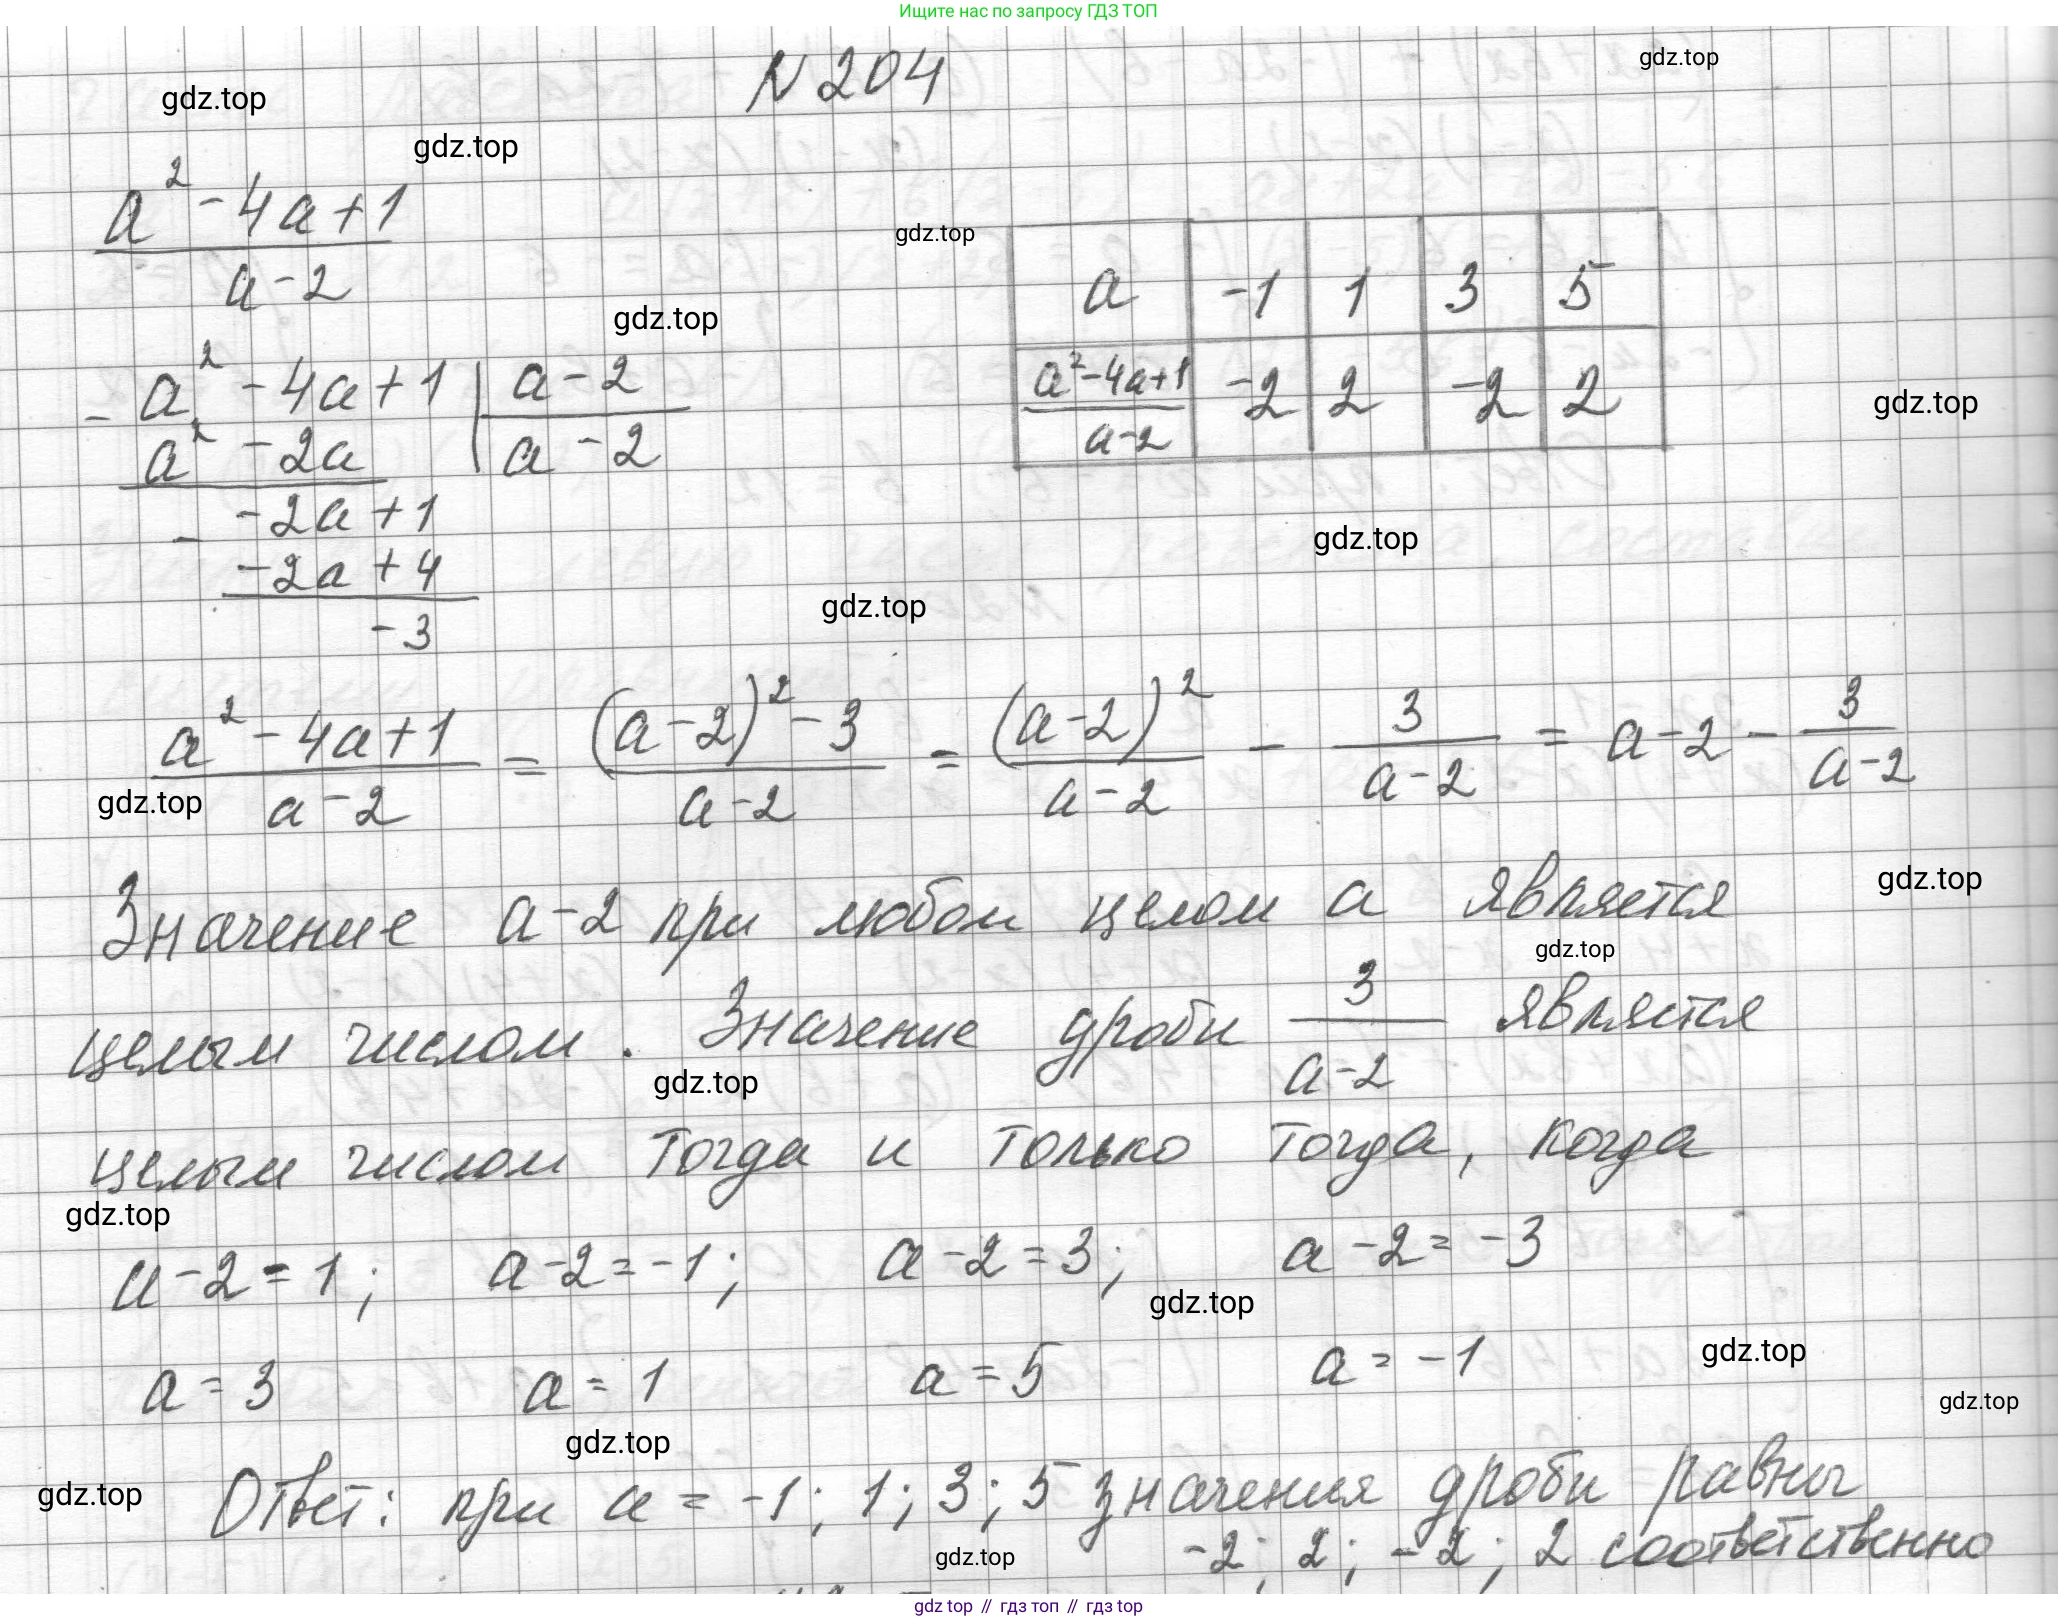 Ищите нас по запросу ГДЗ ТОП
N 204
gdz.top
gdz.top
gdz.top
(a² - 4a + 1)/(a - 2)
gdz.top
a | -1 | 1 | 3 | 5
(a² - 4a + 1)/(a - 2) | -2 | 2 | -2 | 2
gdz.top
gdz.top
- a² - 4a + 1 | a - 2
a² - 2a | a - 2
- -2a + 1
-2a + 4
-3
gdz.top
gdz.top
(a² - 4a + 1)/(a - 2) = ((a - 2)² - 3)/(a - 2) = (a - 2)²/(a - 2) - 3/(a - 2) = a - 2 - 3/(a - 2)
gdz.top
gdz.top
Значение a - 2 при любом целом a является
gdz.top
целым числом. Значение дроби 3/(a - 2) является
gdz.top
целым числом тогда и только тогда, когда
gdz.top
a - 2 = 1; a - 2 = -1; a - 2 = 3; a - 2 = -3
gdz.top
gdz.top
a = 3 a = 1 a = 5 a = -1
gdz.top
gdz.top
gdz.top
Ответ: при a = -1; 1; 3; 5 значения дроби равны
gdz.top
-2; 2; -2; 2 соответственно
gdz top // гдз топ // гдз top